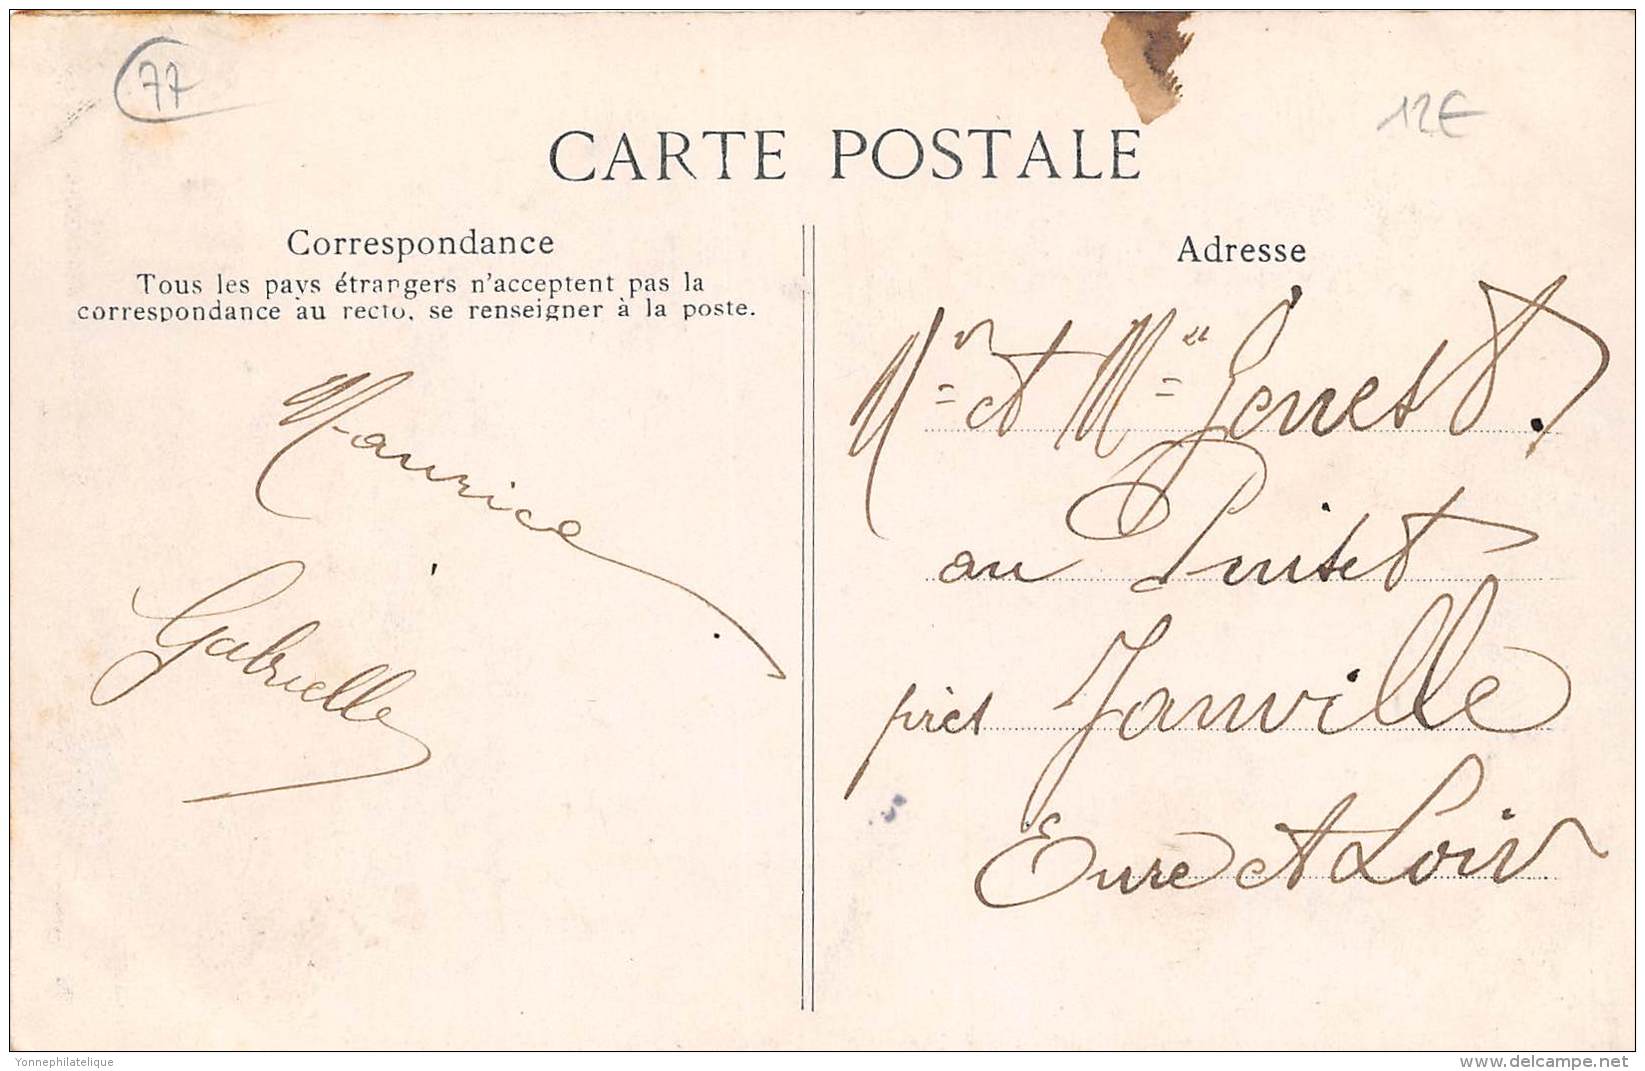 77
12€
CARTE POSTALE
Correspondance
Tous les pays étrangers n'acceptent pas la
correspondance au recto, se renseigner à la poste.
Maurice
Gabrielle
Adresse
Mr et Mme Genest.
au Puiset
près Janville
Eure et Loir
Yonnephilatelique
delcampe.net